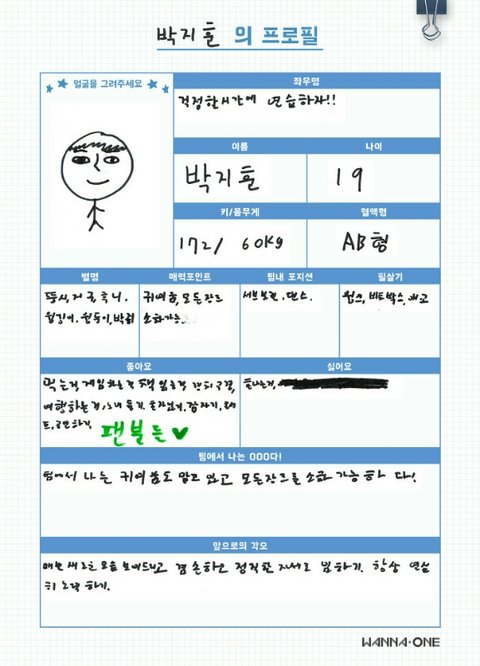 박지훈 의 프로필
얼굴을 그려주세요
좌우명
걱정할시간에 연습하자!!
이름
나이
박지훈
19
키/몸무게
혈액형
172/ 60kg
AB형
별명
매력포인트
팀내 포지션
필살기
귀여움, 모든장르
소화가능
서브보컬, 댄스.
윙크, 비트박스,
좋아요
싫어요
먹는것, 게임하는것
여행하는것, 노래 듣기, 혼자있기, 잠자기,
팬분들♥
팀에서 나는 OOO다!
팀에서 나는 귀여움도 맡고 있고 모든장르를 소화 가능하 다!
앞으로의 각오
매번 새로운 모습 보여드리고 겸손하고 정직한 자세로 임하기. 항상 연습
히 노력 하기.
WANNA·ONE